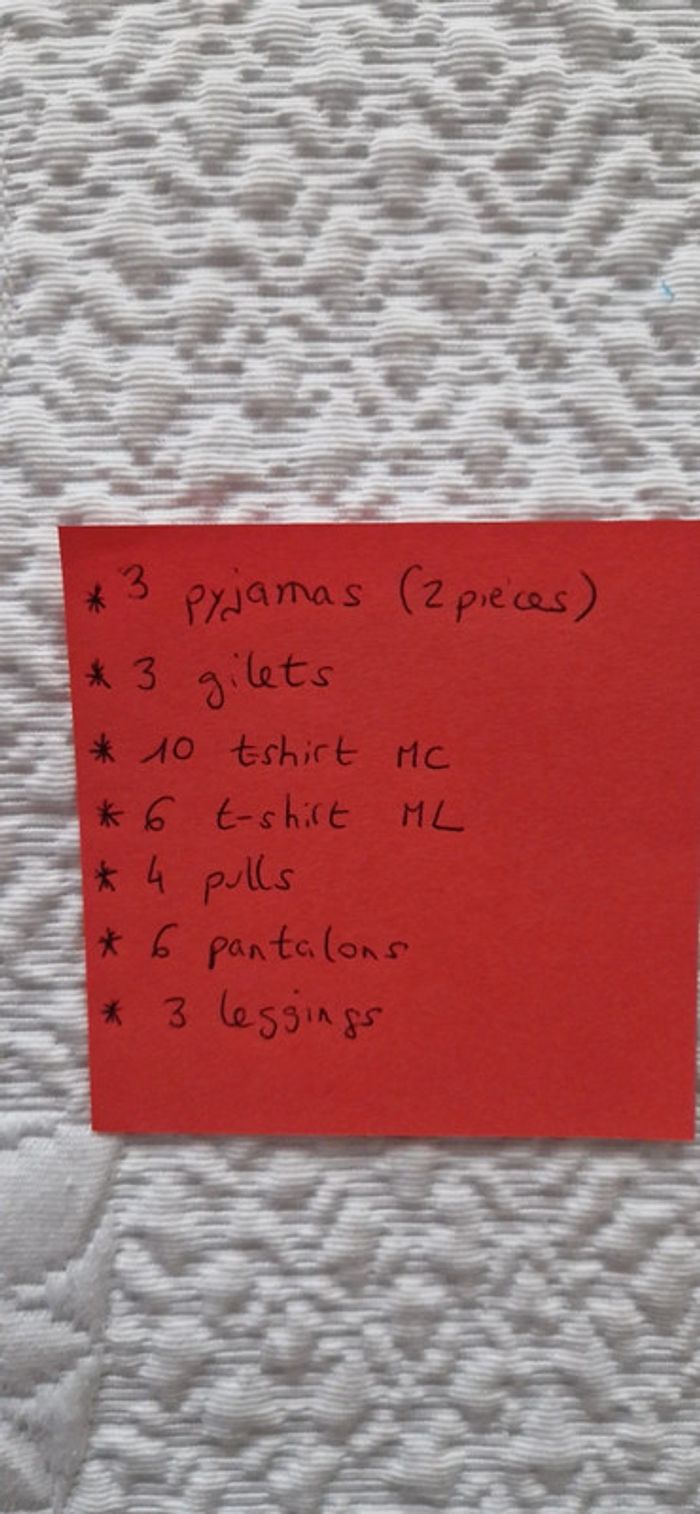 * 3 pyjamas (2 pièces)
* 3 gilets
* 10 tshirt MC
* 6 t-shirt ML
* 4 pulls
* 6 pantalons
* 3 leggings